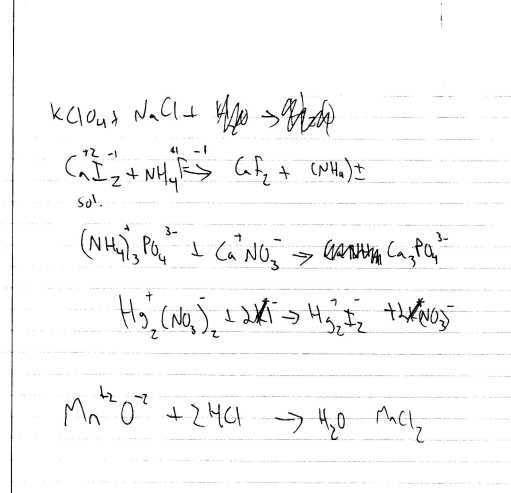 KClO₄+ NaCl + →
Ca⁺²I₂⁻¹ + NH₄⁺¹F⁻¹ → CaF₂ + (NH₄)I
sol.
(NH₄)⁺₃PO₄³⁻ + Ca⁺NO₃⁻ → Ca₃PO₄³⁻
Hg₂⁺(NO₃)⁻₂ + 2 I⁻ → Hg₂⁺I₂⁻ + 2 (NO₃)⁻
Mn⁺²O⁻² + 2HCl → H₂O MnCl₂